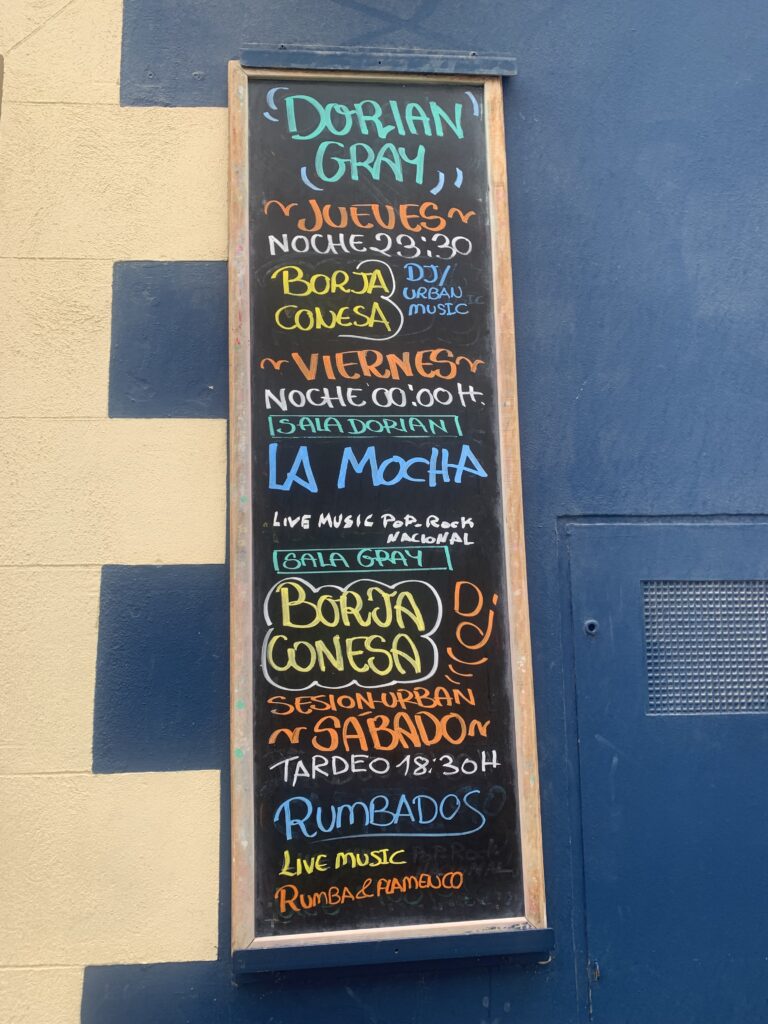 DORIAN
GRAY
~JUEVES~
NOCHE 23:30
BORJA
CONESA
DJ/
URBAN
MUSIC
~VIERNES~
NOCHE 00:00H.
SALA DORIAN
LA MOCHA
LIVE MUSIC POP-ROCK
NACIONAL
SALA GRAY
BORJA
CONESA
Dj
SESION-URBAN
~SABADO~
TARDEO 18:30H
RUMBADOS
LIVE MUSIC
RUMBA & FLAMENCO